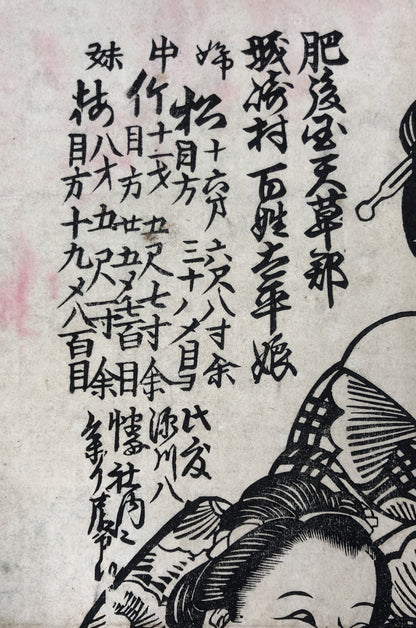 肥後国天草郡
城崎村 百姓太平娘
姉 松 十六才 六尺八寸余
目方 三十八〆目
中 竹 十二才 五尺七寸余
目方 廿五〆七百目
妹 梅 八才 五尺一寸余
目方十九〆八百目
此度
深川八
幡社内ニ